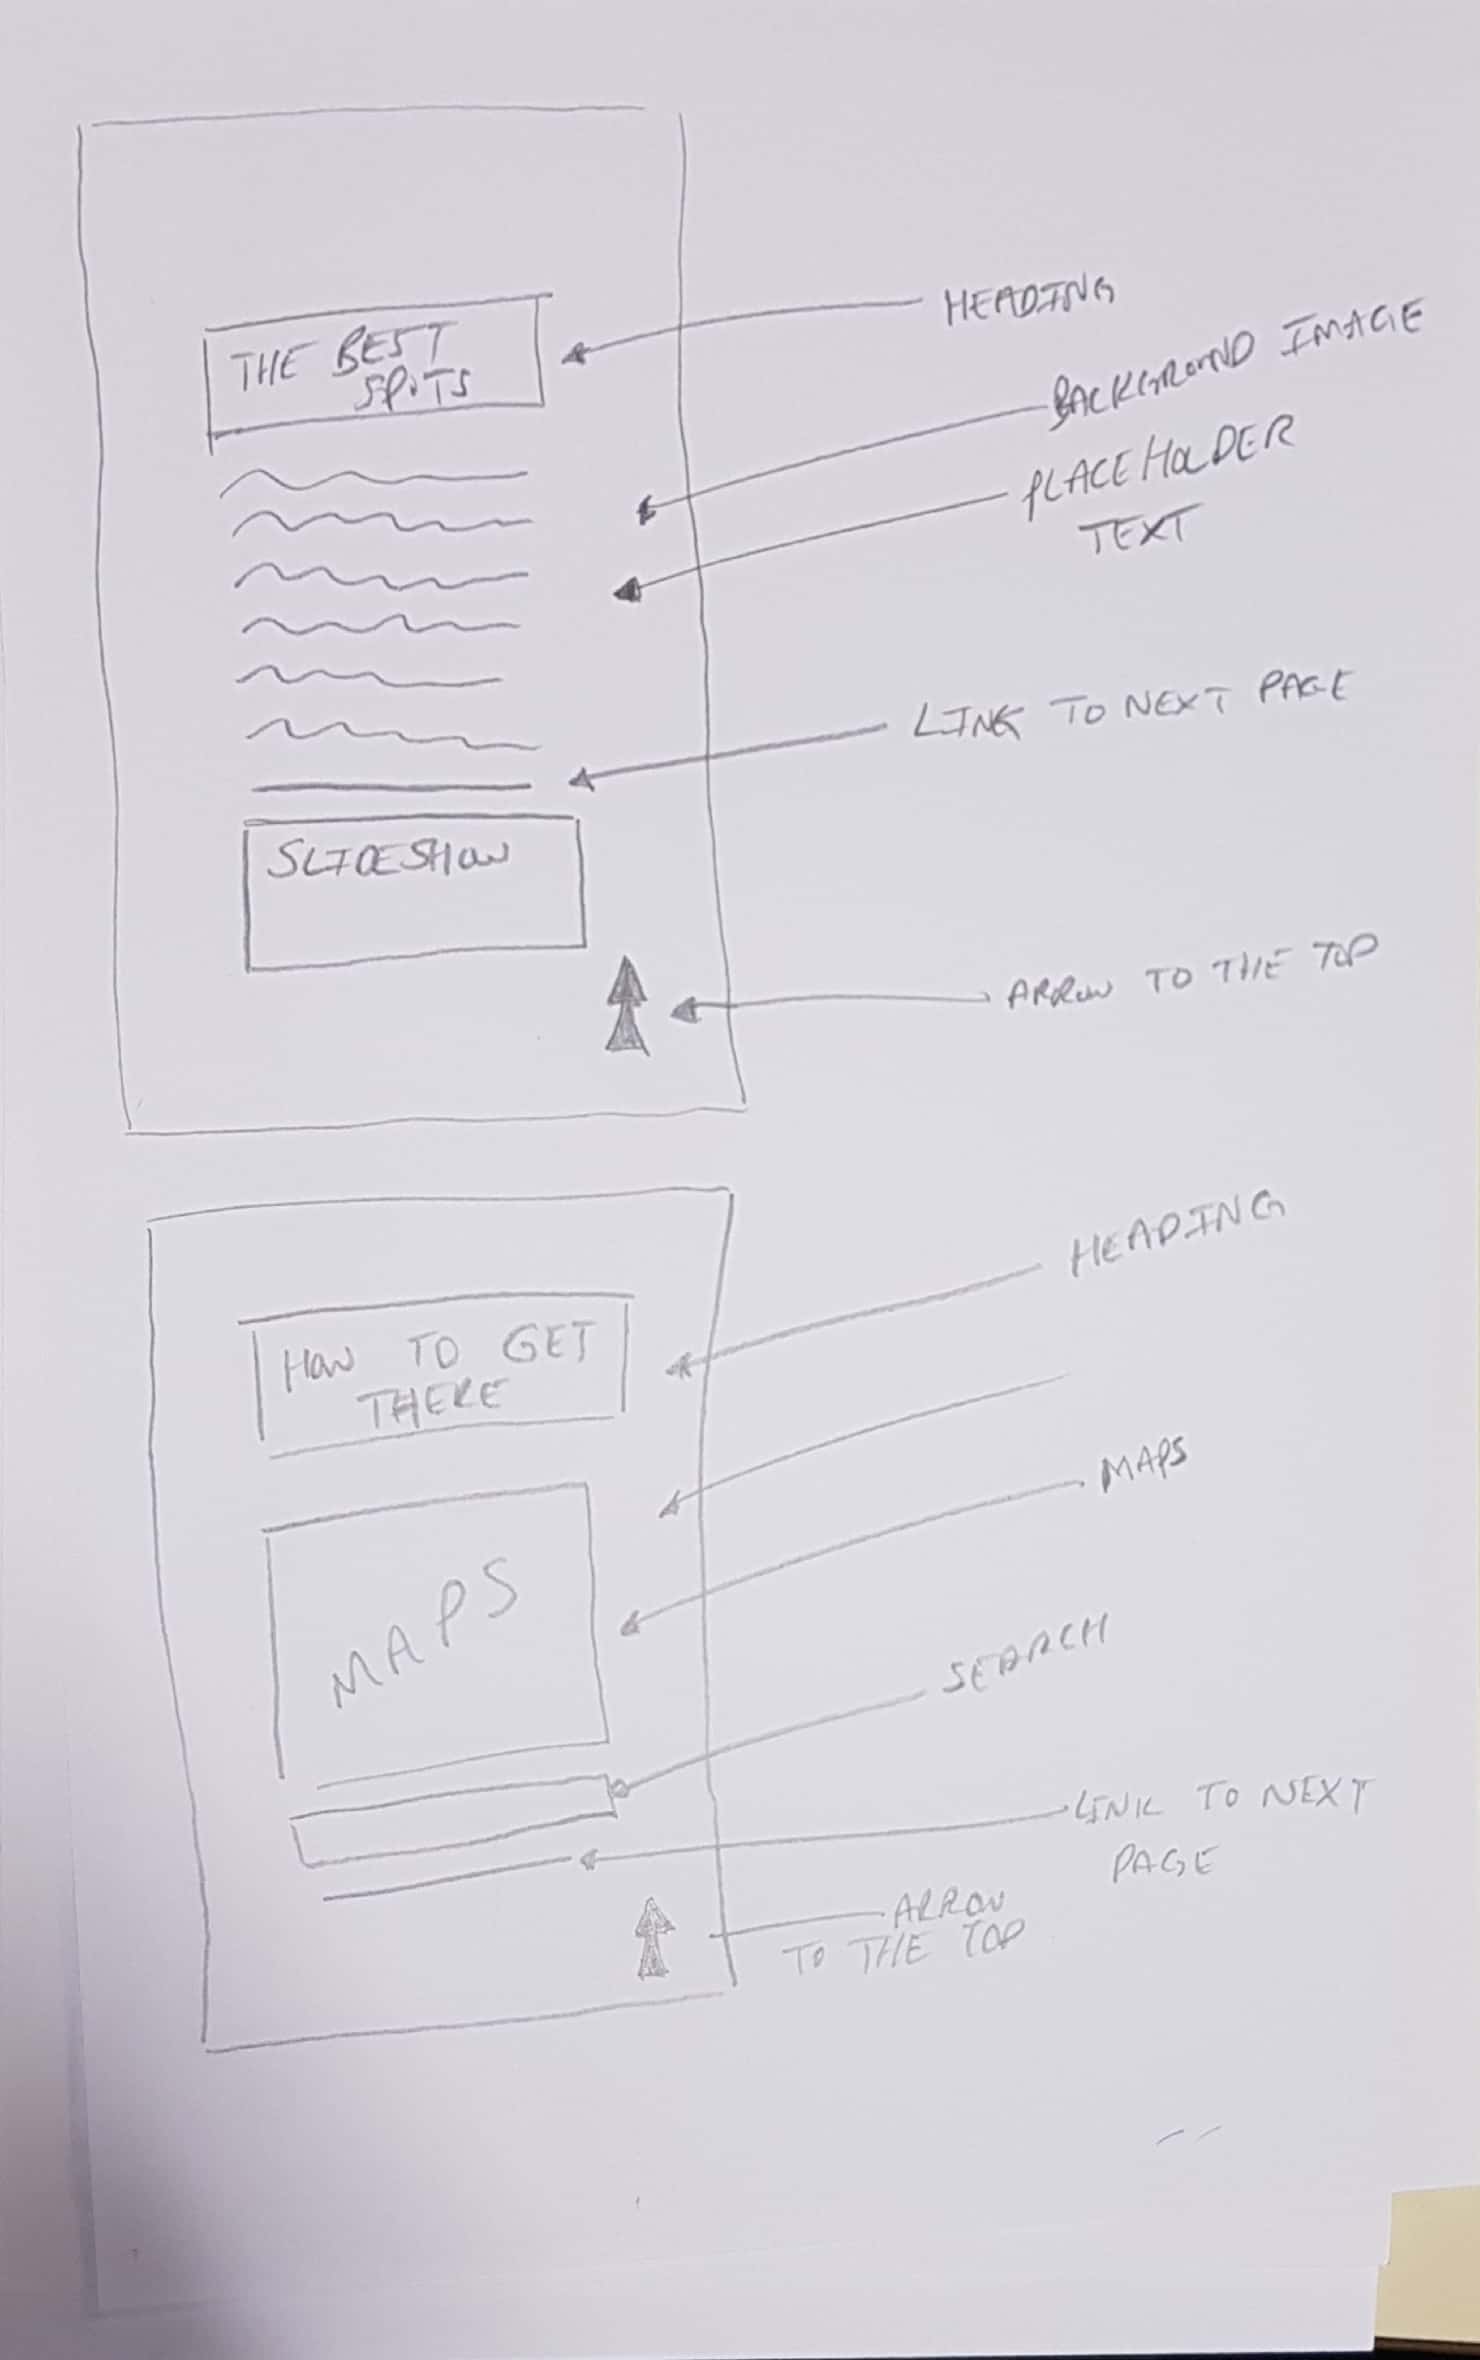 THE BEST
SPOTS
HEADING
BACKGROUND IMAGE
PLACEHOLDER
TEXT
LINK TO NEXT PAGE
SLIDESHOW
ARROW TO THE TOP
HOW TO GET
THERE
HEADING
MAPS
MAPS
SEARCH
LINK TO NEXT
PAGE
ARROW
TO THE TOP